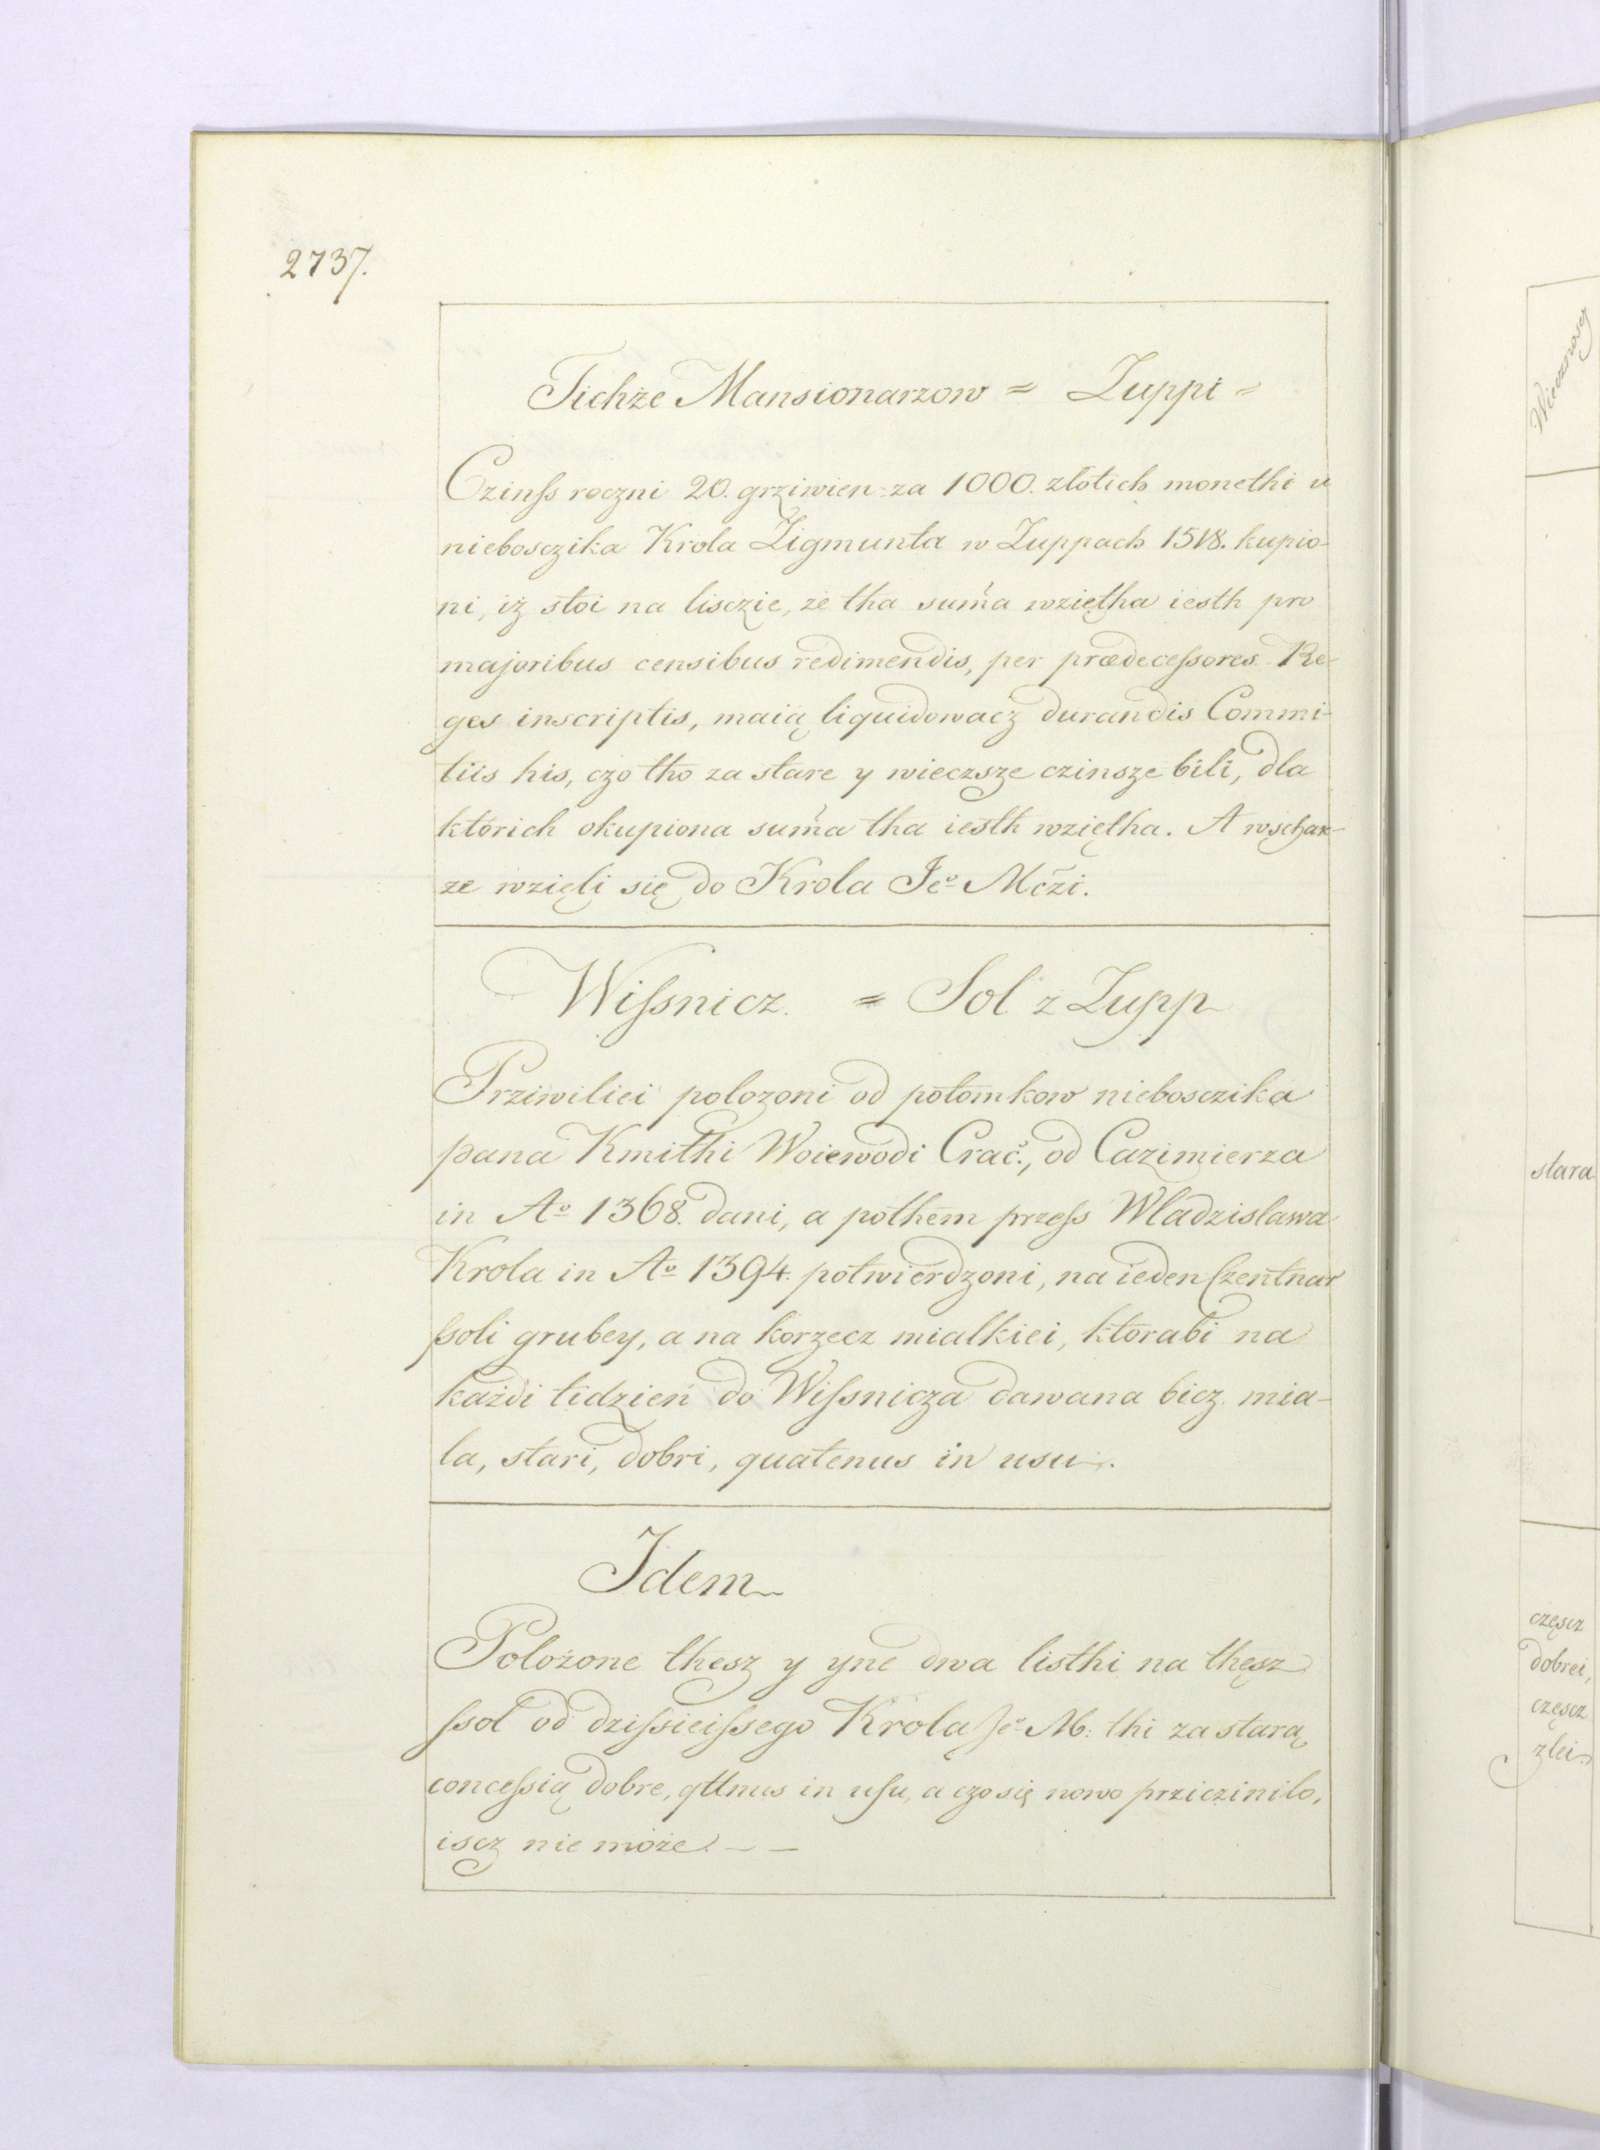 2737.
Tichże Mansionarzow = Zuppi =
Czinss roczni 20. grziwien za 1000. złotich monethi u
niebosczika Krola Zigmunta w Zuppach 1518. kupio-
ni, iż stoi na lisczie, ze tha summa wziętha iesth pro
majoribus censibus redimendis, per prædecessores Re-
ges inscriptis, maią liquidowacz durandis Commi-
tiis his, czo tho za stare y wieczsze czinsze bili, dla
ktorich okupiona summa tha iesth wziętha. A wschak-
ze wzięli się do Krola Jeº Mczi.
Wissnicz. = Sol z Zupp
Prziwiliei polozoni od potomkow niebosczika
pana Kmithi Woiewodi Crac., od Cazimierza
in Aº 1368. dani, a pothem przess Wladzislawa
Krola in Aº 1394. potwierdzoni, na ieden Czentnar
ssoli grubey, a na korzecz mialkiei, ktorabi na
każdi tidzień do Wissnicza dawana bicz mia-
la, stari, dobri, quatenus in usu.
Idem
Polożone thesz y yne dwa listhi na thęsz
ssol od dzissieissego Krola Jeº M: thi za starą
concessią dobre, qttnus in usu, a czo się nowo przicziniło,
iscz nie może. — —
Wiecznoscz
stara
częscz
dobrei,
częscz
zlei